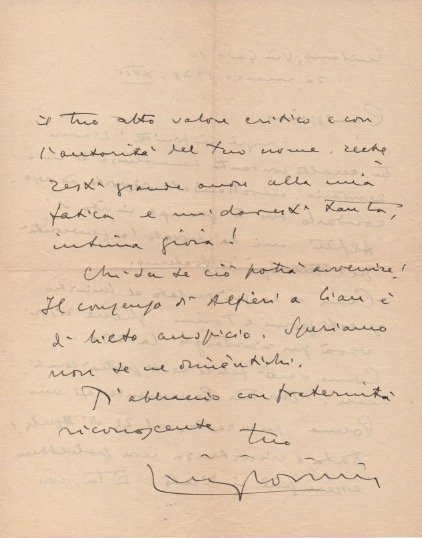 il tuo alto valore critico e con
l'autorità del tuo nome, reche
resti grande onore alla mia
fatica e mi daresti tanta,
intima gioia!
Chi sa se ciò potrà avvenire!
Il consenso di Alfieri a Ciano è
di lieto auspicio. Speriamo
non se ne dimentichi.
T'abbraccio con fraternità
riconoscente tuo